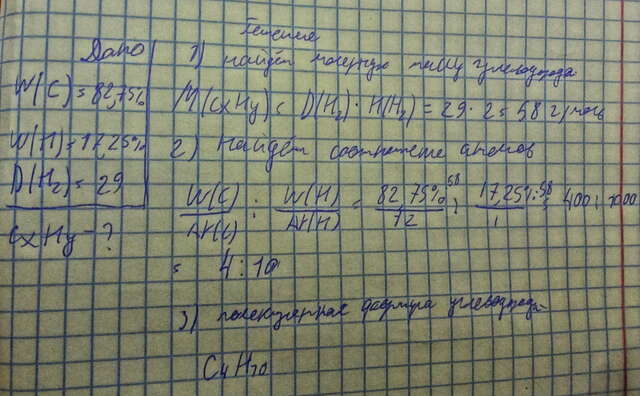 Дано
W(C) = 82,75%
W(H) = 17,25%
D(H₂) = 29
CxHy - ?
Решение
1) Найдём молярную массу углеводорода
M(CxHy) = D(H₂) · M(H₂) = 29 · 2 = 58 г/моль
2) Найдём соотношение атомов
W(C)/Ar(C) : W(H)/Ar(H) = 82,75%·58/12 : 17,25%·58/1 = 400 : 1000
= 4 : 10
3) молекулярная формула углеводорода
C₄H₁₀